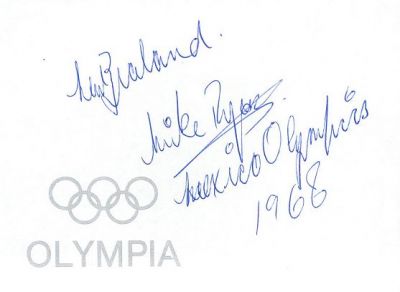 New Zealand.
Mike Ryan.
Mexico Olympics
1968
OLYMPIA